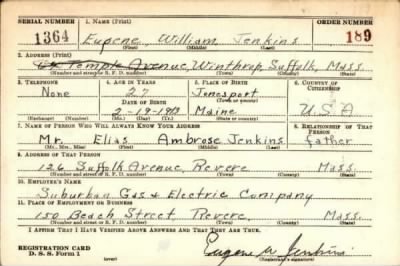 SERIAL NUMBER 1. NAME (Print) ORDER NUMBER
1364 Eugene William Jenkins 189
(First) (Middle) (Last)
2. ADDRESS (Print)
Temple Avenue, Winthrop, Suffolk, Mass.
(Number and street or R. F. D. number) (Town) (County) (State)
3. TELEPHONE 4. AGE IN YEARS 5. PLACE OF BIRTH 6. COUNTRY OF CITIZENSHIP
None 27 Jonesport
DATE OF BIRTH (Town or county)
2-19-1913 Maine U.S.A
(Exchange) (Number) (Mo.) (Day) (Yr.) (State or country)
7. NAME OF PERSON WHO WILL ALWAYS KNOW YOUR ADDRESS 8. RELATIONSHIP OF THAT PERSON
Mr. Elias Ambrose Jenkins father
(Mr., Mrs., Miss) (First) (Middle) (Last)
9. ADDRESS OF THAT PERSON
126 Suffolk Avenue, Revere Mass.
(Number and street or R. F. D. number) (Town) (County) (State)
10. EMPLOYER'S NAME
Suburban Gas & Electric Company
11. PLACE OF EMPLOYMENT OR BUSINESS
150 Beach Street, Revere, Mass.
(Number and street or R. F. D. number) (Town) (County) (State)
I AFFIRM THAT I HAVE VERIFIED ABOVE ANSWERS AND THAT THEY ARE TRUE.
REGISTRATION CARD
D. S. S. Form 1 (over) Eugene W. Jenkins
(Registrant's signature)